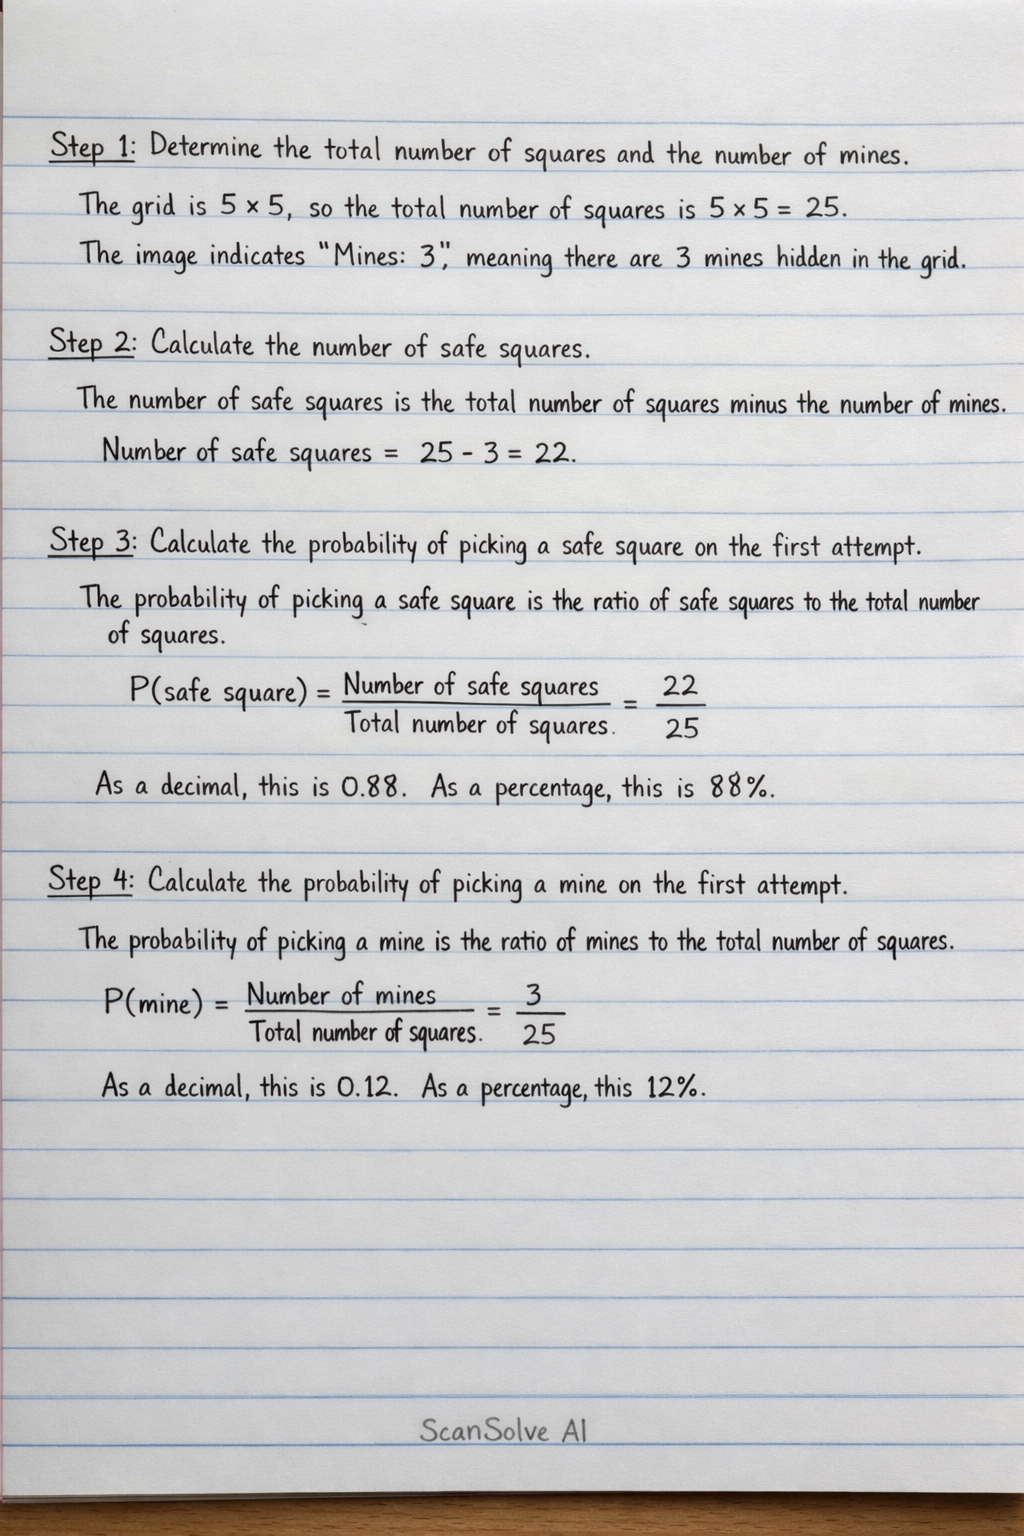 Step 1: Determine the total number of squares and the number of mines.
The grid is 5 × 5, so the total number of squares is 5 × 5 = 25.
The image indicates "Mines: 3", meaning there are 3 mines hidden in the grid.
Step 2: Calculate the number of safe squares.
The number of safe squares is the total number of squares minus the number of mines.
Number of safe squares = 25 - 3 = 22.
Step 3: Calculate the probability of picking a safe square on the first attempt.
The probability of picking a safe square is the ratio of safe squares to the total number
of squares.
P(safe square) = Number of safe squares / Total number of squares. = 22 / 25
As a decimal, this is 0.88. As a percentage, this is 88%.
Step 4: Calculate the probability of picking a mine on the first attempt.
The probability of picking a mine is the ratio of mines to the total number of squares.
P(mine) = Number of mines / Total number of squares. = 3 / 25
As a decimal, this is 0.12. As a percentage, this 12%.
ScanSolve AI